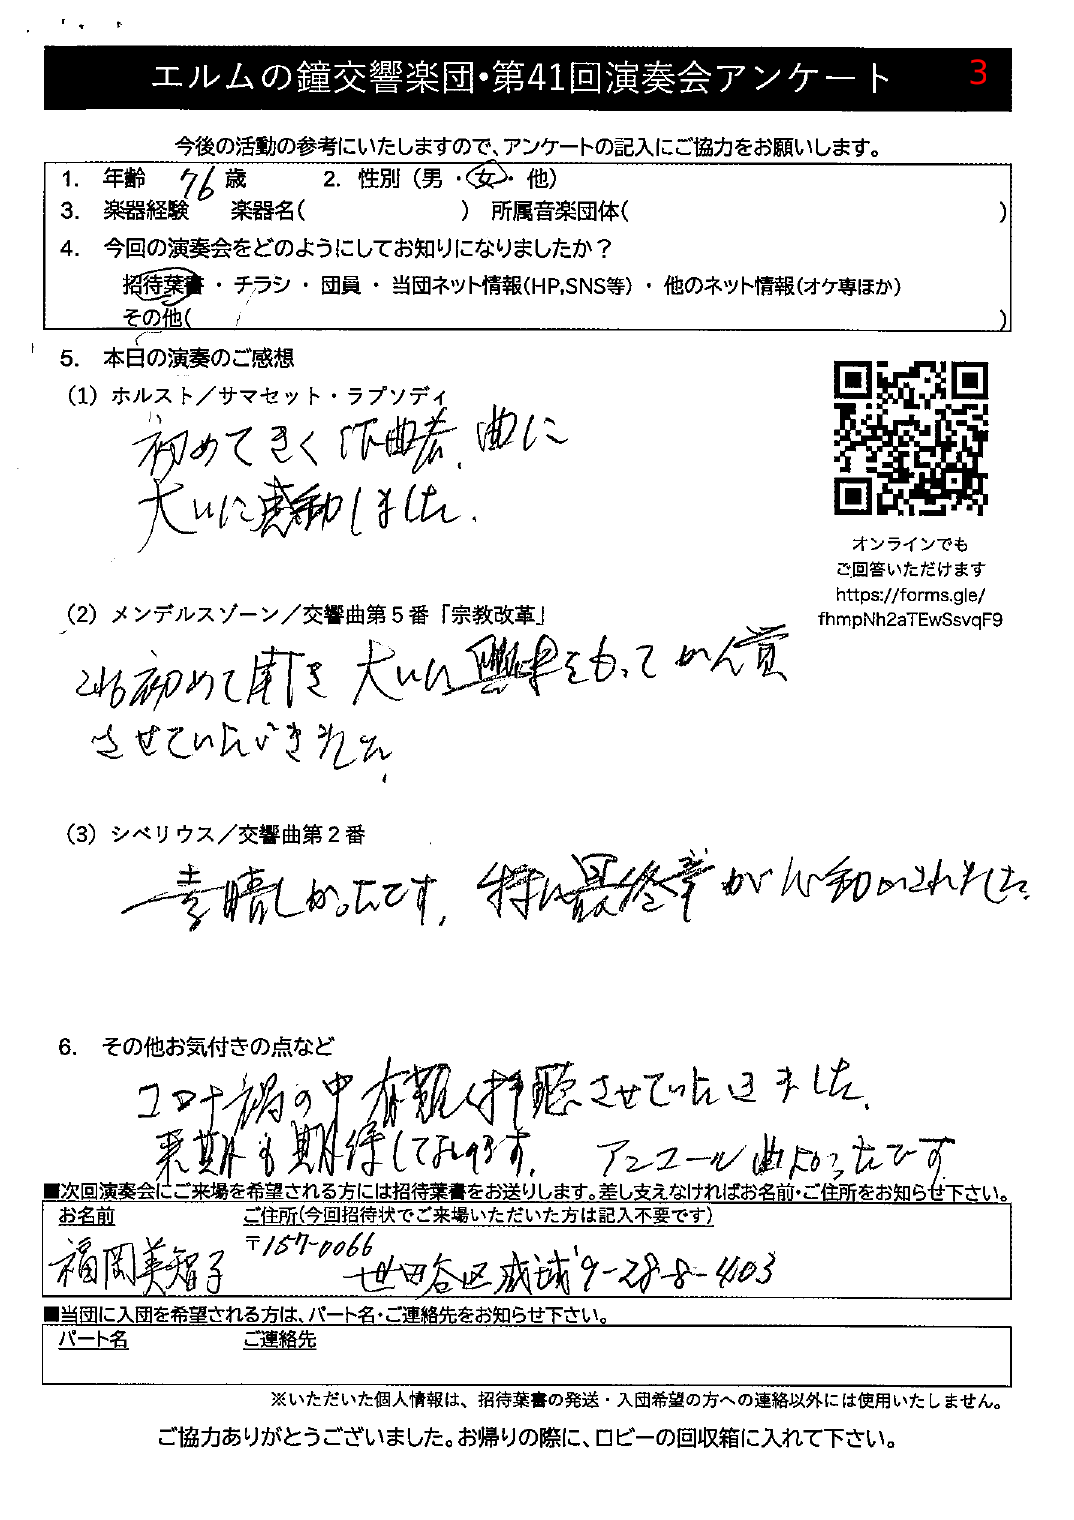 エルムの鐘交響楽団・第41回演奏会アンケート 3
今後の活動の参考にいたしますので、アンケートの記入にご協力をお願いします。
1. 年齢 76 歳 2. 性別（男・女・他）
3. 楽器経験 楽器名( ) 所属音楽団体( )
4. 今回の演奏会をどのようにしてお知りになりましたか？
招待葉書 ・ チラシ ・ 団員 ・ 当団ネット情報(HP,SNS等) ・ 他のネット情報(オケ専ほか)
その他( )
5. 本日の演奏のご感想
(1) ホルスト／サマセット・ラプソディ
初めてきく作曲者、曲に
大いに感動しました。
オンラインでも
ご回答いただけます
https://forms.gle/
fhmpNh2aTEwSsvqF9
(2) メンデルスゾーン／交響曲第５番「宗教改革」
初めて聞き 大いに興味をもって かん賞
させていただきました。
(3) シベリウス／交響曲第２番
素晴しかったです。特に最終章が心動かされました
6. その他お気付きの点など
コロナ禍の中 有難く拝聴させていただきました。
来期も期待しております。 アンコール曲よかったです
■次回演奏会にご来場を希望される方には招待葉書をお送りします。差し支えなければお名前・ご住所をお知らせ下さい。
お名前 ご住所(今回招待状でご来場いただいた方は記入不要です)
福岡美智子 〒157-0066
世田谷区成城9-28-8-403
■当団に入団を希望される方は、パート名・ご連絡先をお知らせ下さい。
パート名 ご連絡先
※いただいた個人情報は、招待葉書の発送・入団希望の方への連絡以外には使用いたしません。
ご協力ありがとうございました。お帰りの際に、ロビーの回収箱に入れて下さい。